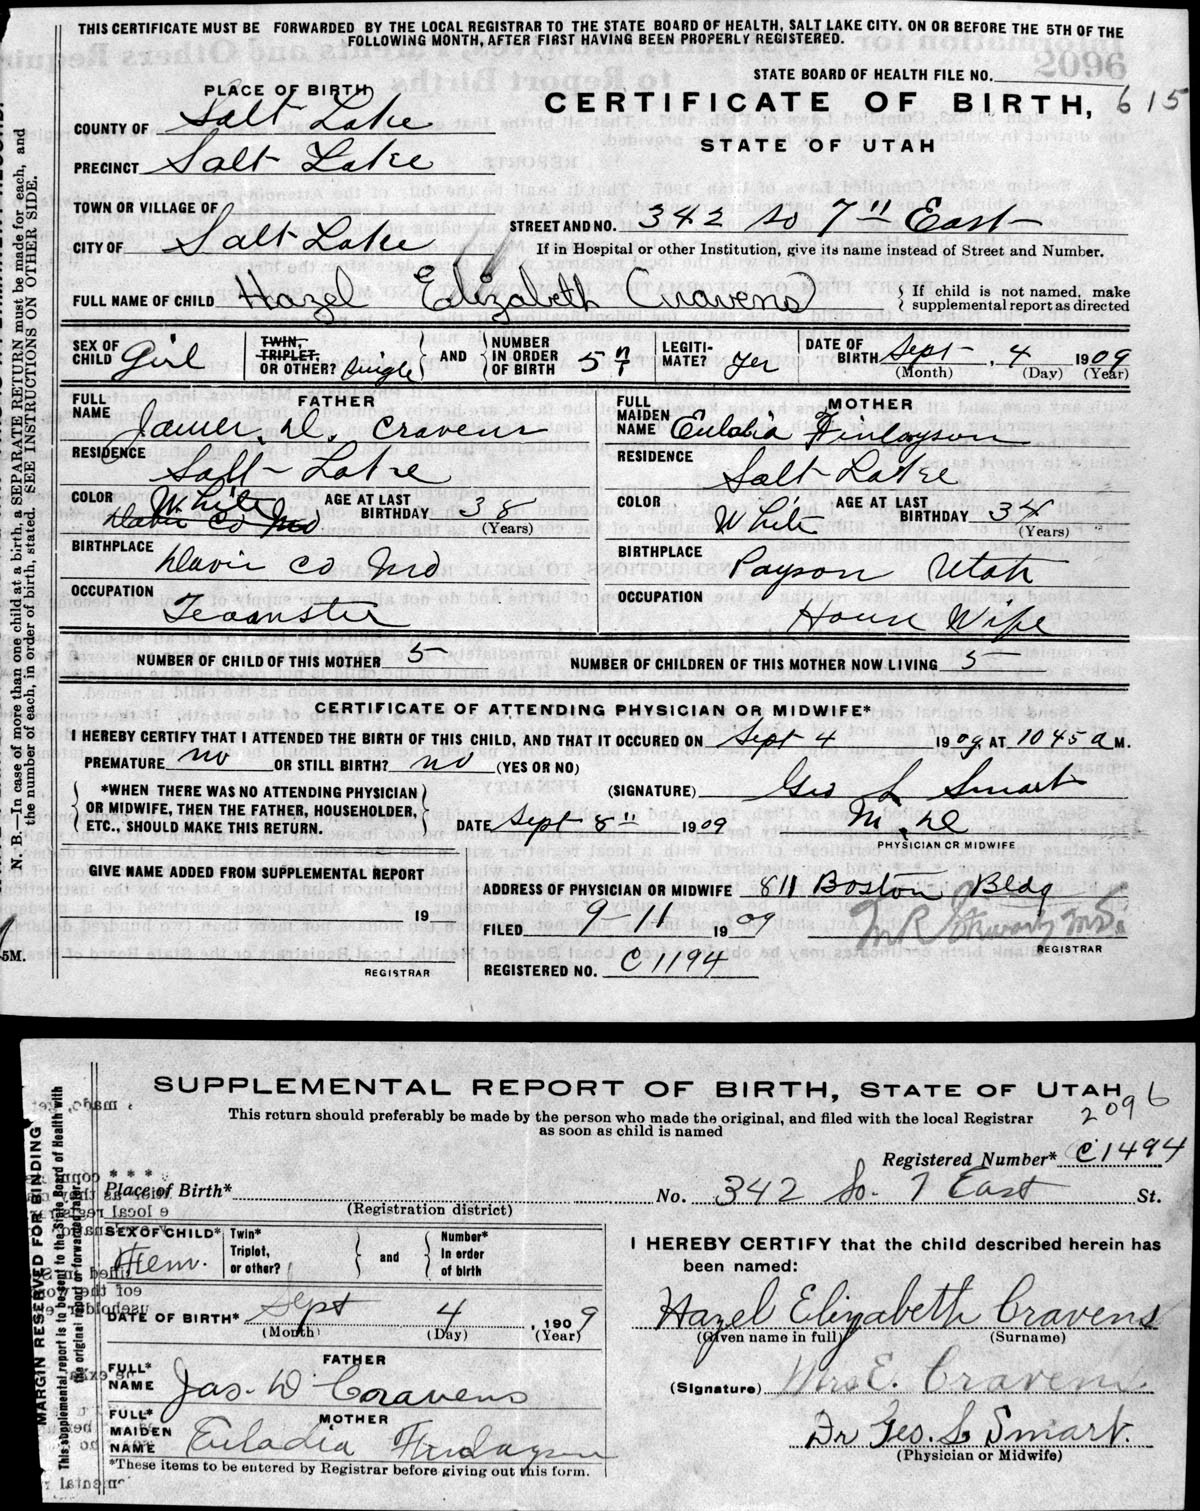 THIS CERTIFICATE MUST BE FORWARDED BY THE LOCAL REGISTRAR TO THE STATE BOARD OF HEALTH, SALT LAKE CITY. ON OR BEFORE THE 5TH OF THE
FOLLOWING MONTH, AFTER FIRST HAVING BEEN PROPERLY REGISTERED.
2096
STATE BOARD OF HEALTH FILE NO.
PLACE OF BIRTH
CERTIFICATE OF BIRTH, 615
STATE OF UTAH
COUNTY OF Salt Lake
PRECINCT Salt Lake
TOWN OR VILLAGE OF
STREET AND NO. 342 So 7" East
CITY OF Salt Lake
If in Hospital or other Institution, give its name instead of Street and Number.
FULL NAME OF CHILD Hazel Elizabeth Cravens
If child is not named, make supplemental report as directed
SEX OF CHILD Girl
TWIN, TRIPLET, OR OTHER? Single
AND NUMBER IN ORDER OF BIRTH 5
LEGITIMATE? Yes
DATE OF BIRTH Sept 4 1909
(Month) (Day) (Year)
FATHER
FULL NAME James. D. Cravens
RESIDENCE Salt Lake
COLOR White
Davis Co Mo
AGE AT LAST BIRTHDAY 38
(Years)
BIRTHPLACE Davis Co Mo
OCCUPATION Teamster
MOTHER
FULL MAIDEN NAME Euladia Finlayson
RESIDENCE Salt Lake
COLOR White
AGE AT LAST BIRTHDAY 34
(Years)
BIRTHPLACE Payson Utah
OCCUPATION House Wife
NUMBER OF CHILD OF THIS MOTHER 5
NUMBER OF CHILDREN OF THIS MOTHER NOW LIVING 5
CERTIFICATE OF ATTENDING PHYSICIAN OR MIDWIFE*
I HEREBY CERTIFY THAT I ATTENDED THE BIRTH OF THIS CHILD, AND THAT IT OCCURED ON Sept 4 1909. AT 1045 a M.
PREMATURE no OR STILL BIRTH? no (YES OR NO)
*WHEN THERE WAS NO ATTENDING PHYSICIAN OR MIDWIFE, THEN THE FATHER, HOUSEHOLDER, ETC., SHOULD MAKE THIS RETURN.
(SIGNATURE) Geo L Smart
DATE Sept 8" 1909
M. D
PHYSICIAN OR MIDWIFE
GIVE NAME ADDED FROM SUPPLEMENTAL REPORT
19
REGISTRAR
ADDRESS OF PHYSICIAN OR MIDWIFE 811 Boston Bldg
FILED 9-11 1909
REGISTRAR
REGISTERED NO. C1194
N. B.—In case of more than one child at a birth, a SEPARATE RETURN must be made for each, and
the number of each, in order of birth, stated. SEE INSTRUCTIONS ON OTHER SIDE.
5M.
SUPPLEMENTAL REPORT OF BIRTH, STATE OF UTAH
2096
This return should preferably be made by the person who made the original, and filed with the local Registrar
as soon as child is named
Registered Number* C1494
Place of Birth* No. 342 So. 7 East St.
(Registration district)
SEX OF CHILD* Fem.
Twin* Triplet, or other?
and
Number* In order of birth
DATE OF BIRTH* Sept 4, 1909
(Month) (Day) (Year)
FATHER
FULL* NAME Jas. D Cravens
MOTHER
FULL* MAIDEN NAME Euladia Findayson
*These items to be entered by Registrar before giving out this form.
I HEREBY CERTIFY that the child described herein has
been named:
Hazel Elizabeth Cravens
(Given name in full) (Surname)
(Signature) Mrs E. Cravens.
Dr Geo. L Smart.
(Physician or Midwife)
MARGIN RESERVED FOR BINDING
This supplemental report is to be sent to the State Board of Health with
the original report or forwarded later.